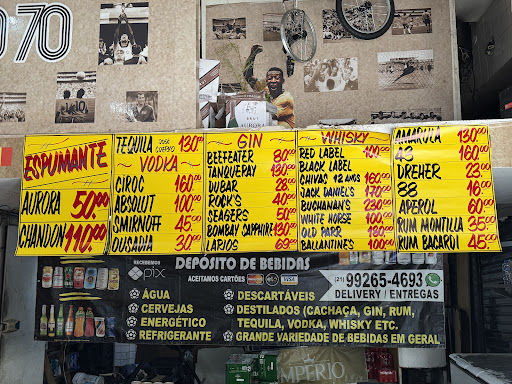 70
BRUT
AURORA
ESPUMANTE
AURORA 50.00
CHANDON 110.00
TEQUILA JOSE CUERVO 130.00
VODKA
CIROC 160.00
ABSOLUT 100.00
SMIRNOFF 45.00
OUSADIA 30.00
GIN
BEEFEATER 80.00
TANQUERAY 130.00
DUBAR 28.00
ROCK'S 40.00
SEAGERS 50.00
BOMBAY SAPPHIRE 130.00
LARIOS 69.00
WHISKY
RED LABEL 100.00
BLACK LABEL
CHIVAS 12 ANOS 160.00
JACK DANIEL'S 170.00
BUCHANAN'S 230.00
WHITE HORSE 100.00
OLD PARR 180.00
BALLANTINE'S 100.00
AMARULA 130.00
43 160.00
DREHER 23.00
88 16.00
APEROL 60.00
RUM MONTILLA 35.00
RUM BACARDI 45.00
RECEBEMOS
pix
DEPÓSITO DE BEBIDAS
ACEITAMOS CARTÕES
VISA
(21) 99265-4693
DELIVERY / ENTREGAS
ÁGUA
CERVEJAS
ENERGÉTICO
REFRIGERANTE
DESCARTÁVEIS
DESTILADOS (CACHAÇA, GIN, RUM,
TEQUILA, VODKA, WHISKY ETC.
GRANDE VARIEDADE DE BEBIDAS EM GERAL
IMPÉRIO